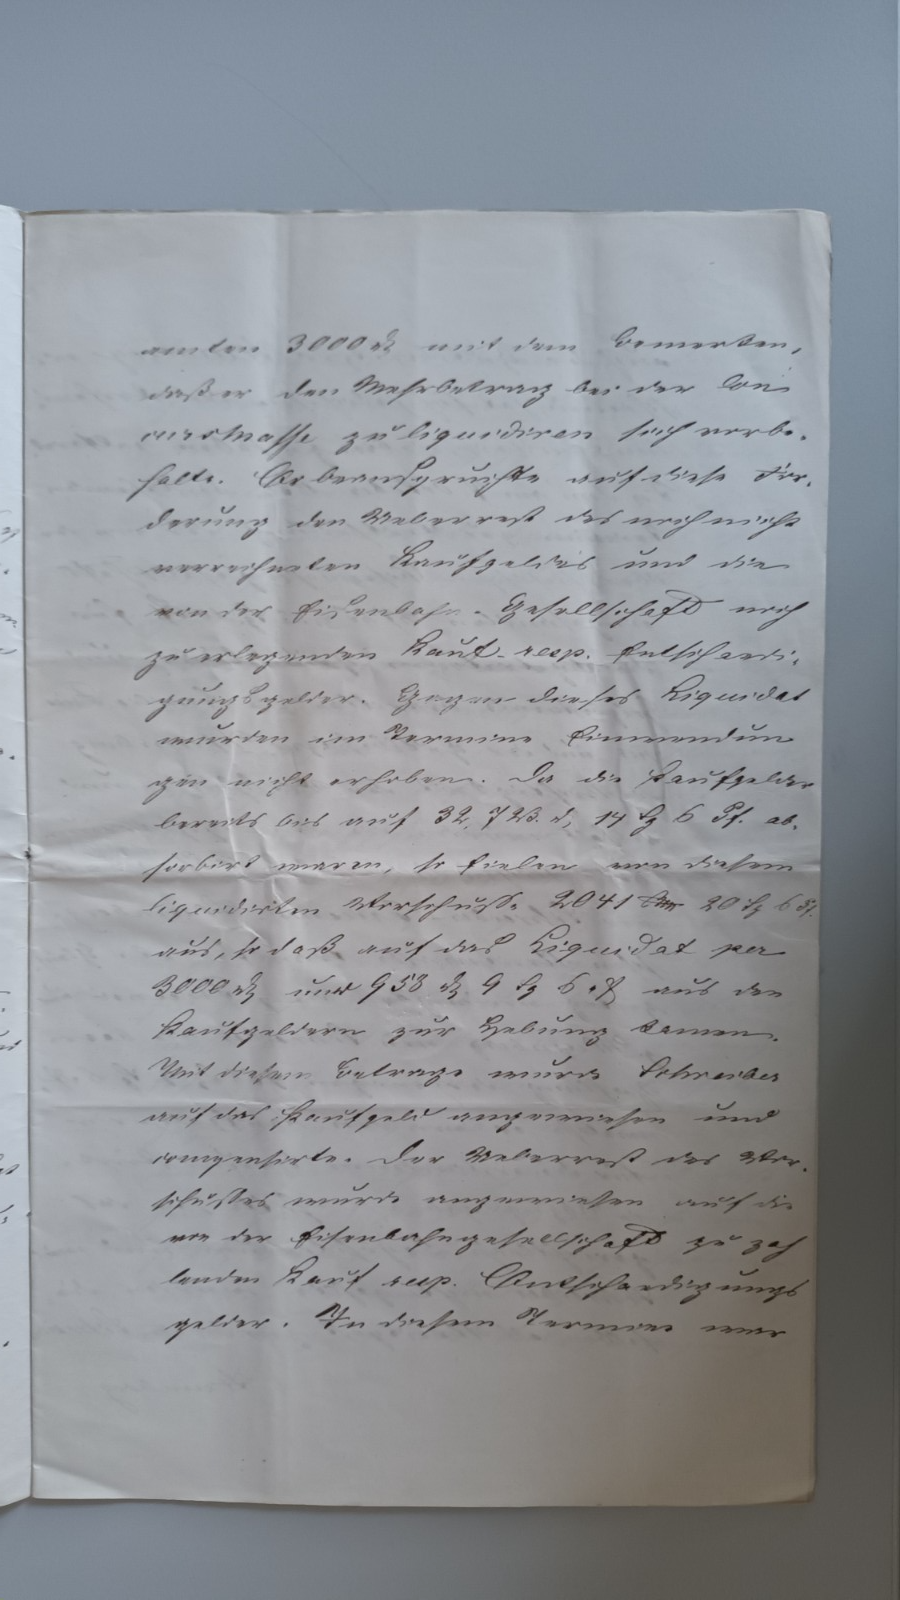 amten 3000 rt mit dem Bemerken,
daß er den Mehrbetrag bei der Con
cursmasse zu liquidiren sich vorbe-
halte. Er beanspruchte auf diese For-
derung den Ueberrest des noch nicht
verrechneten Kaufgeldes und die
von der Eisenbahn-Gesellschaft noch
zu erlegenden Kauf- resp. Entschaedi-
gungsgelder. Gegen dieses Liquidat
wurden im Termine Einwendun
gen nicht erhoben. Da die Kaufgelder
bereits bis auf 32,723. 14 sg 6 Pf. ab-
sorbirt waren, so fielen von diesem
liquidirten Vorschusse 2041 20 sg 6 Pf.
aus, so daß auf das Liquidat per
3000 rt nur 958 rt 9 sg 6 Pf aus den
Kaufgeldern zur Hebung kamen.
Mit diesem Betrage wurde Schreiber
auf das Kaufgeld angewiesen und
compensirte. Der Ueberrest des Vor-
schusses wurde angewiesen auf die
von der Eisenbahngesellschaft zu zah
lenden Kauf resp. Entschaedigungs
gelder. In diesem Termine war